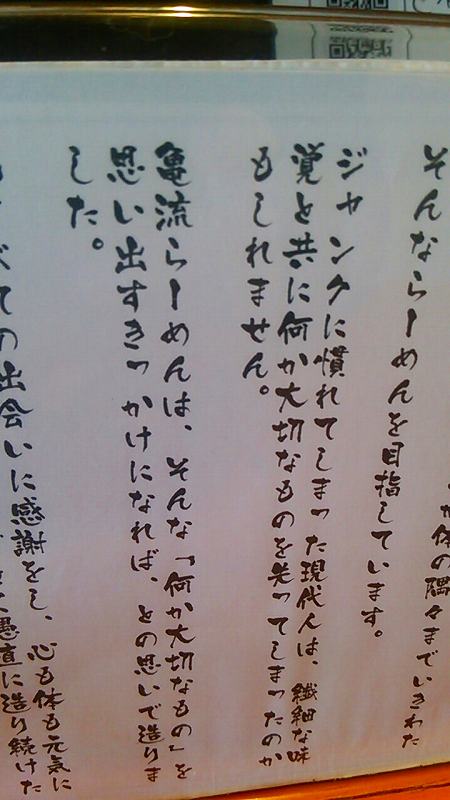 体の隅々までいきわた
そんならーめんを目指しています。
ジャンクに慣れてしまった現代人は、繊細な味
覚と共に何か大切なものを失ってしまったのか
もしれません。
亀流らーめんは、そんな「何か大切なもの」を
思い出すきっかけになれば、との思いで造りま
した。
べての出会いに感謝をし、心も体も元気に
愚直に造り続けた